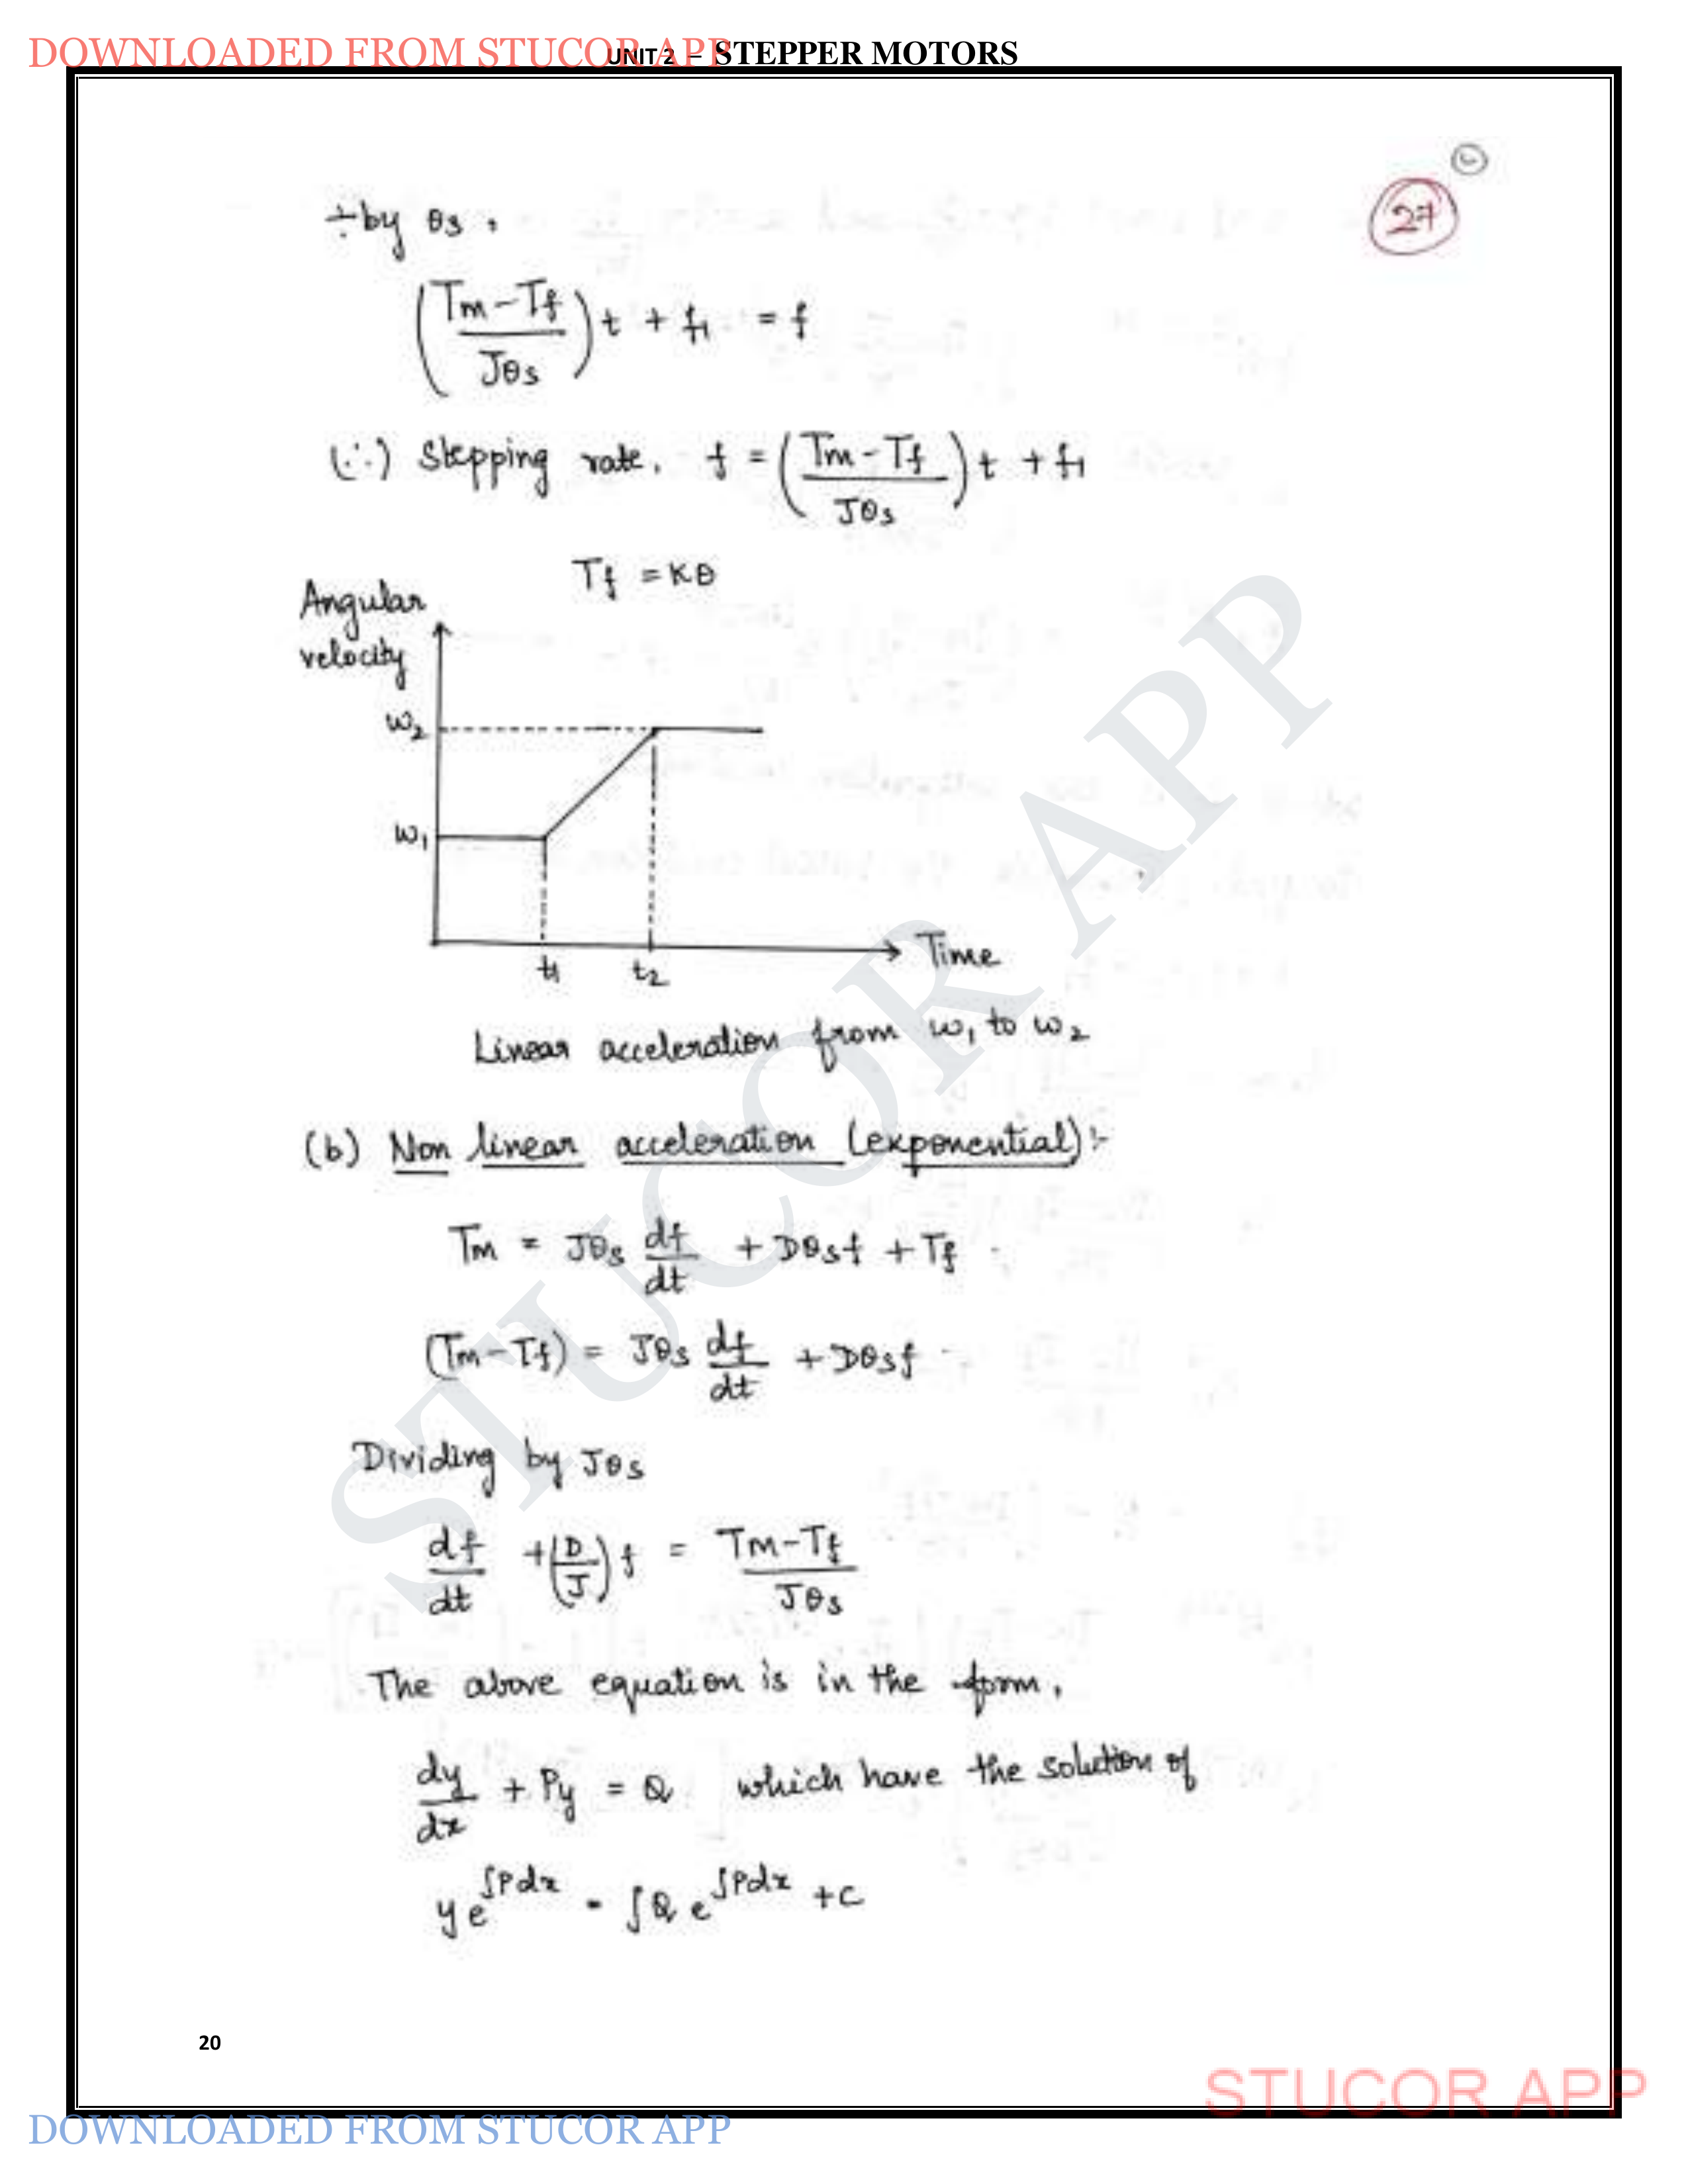 DOWNLOADED FROM STUCOR APP
UNIT 2 – STEPPER MOTORS
27
÷by θs,
(Tm-Tf / Jθs) t + f1 = f
(∴) Stepping rate, f = (Tm-Tf / Jθs) t + f1
Tf = Kθ
Angular
velocity
ω2
ω1
t1 t2
Time
Linear acceleration from ω1 to ω2
(b) Non linear acceleration (exponential):-
Tm = Jθs df/dt + Dθsf + Tf
(Tm-Tf) = Jθs df/dt + Dθsf
Dividing by Jθs
df/dt + (D/J) f = Tm-Tf / Jθs
The above equation is in the form,
dy/dx + Py = Q which have the solution of
y e^∫Pdx = ∫Q e^∫Pdx + C
STUCOR APP
20
STUCOR APP
DOWNLOADED FROM STUCOR APP